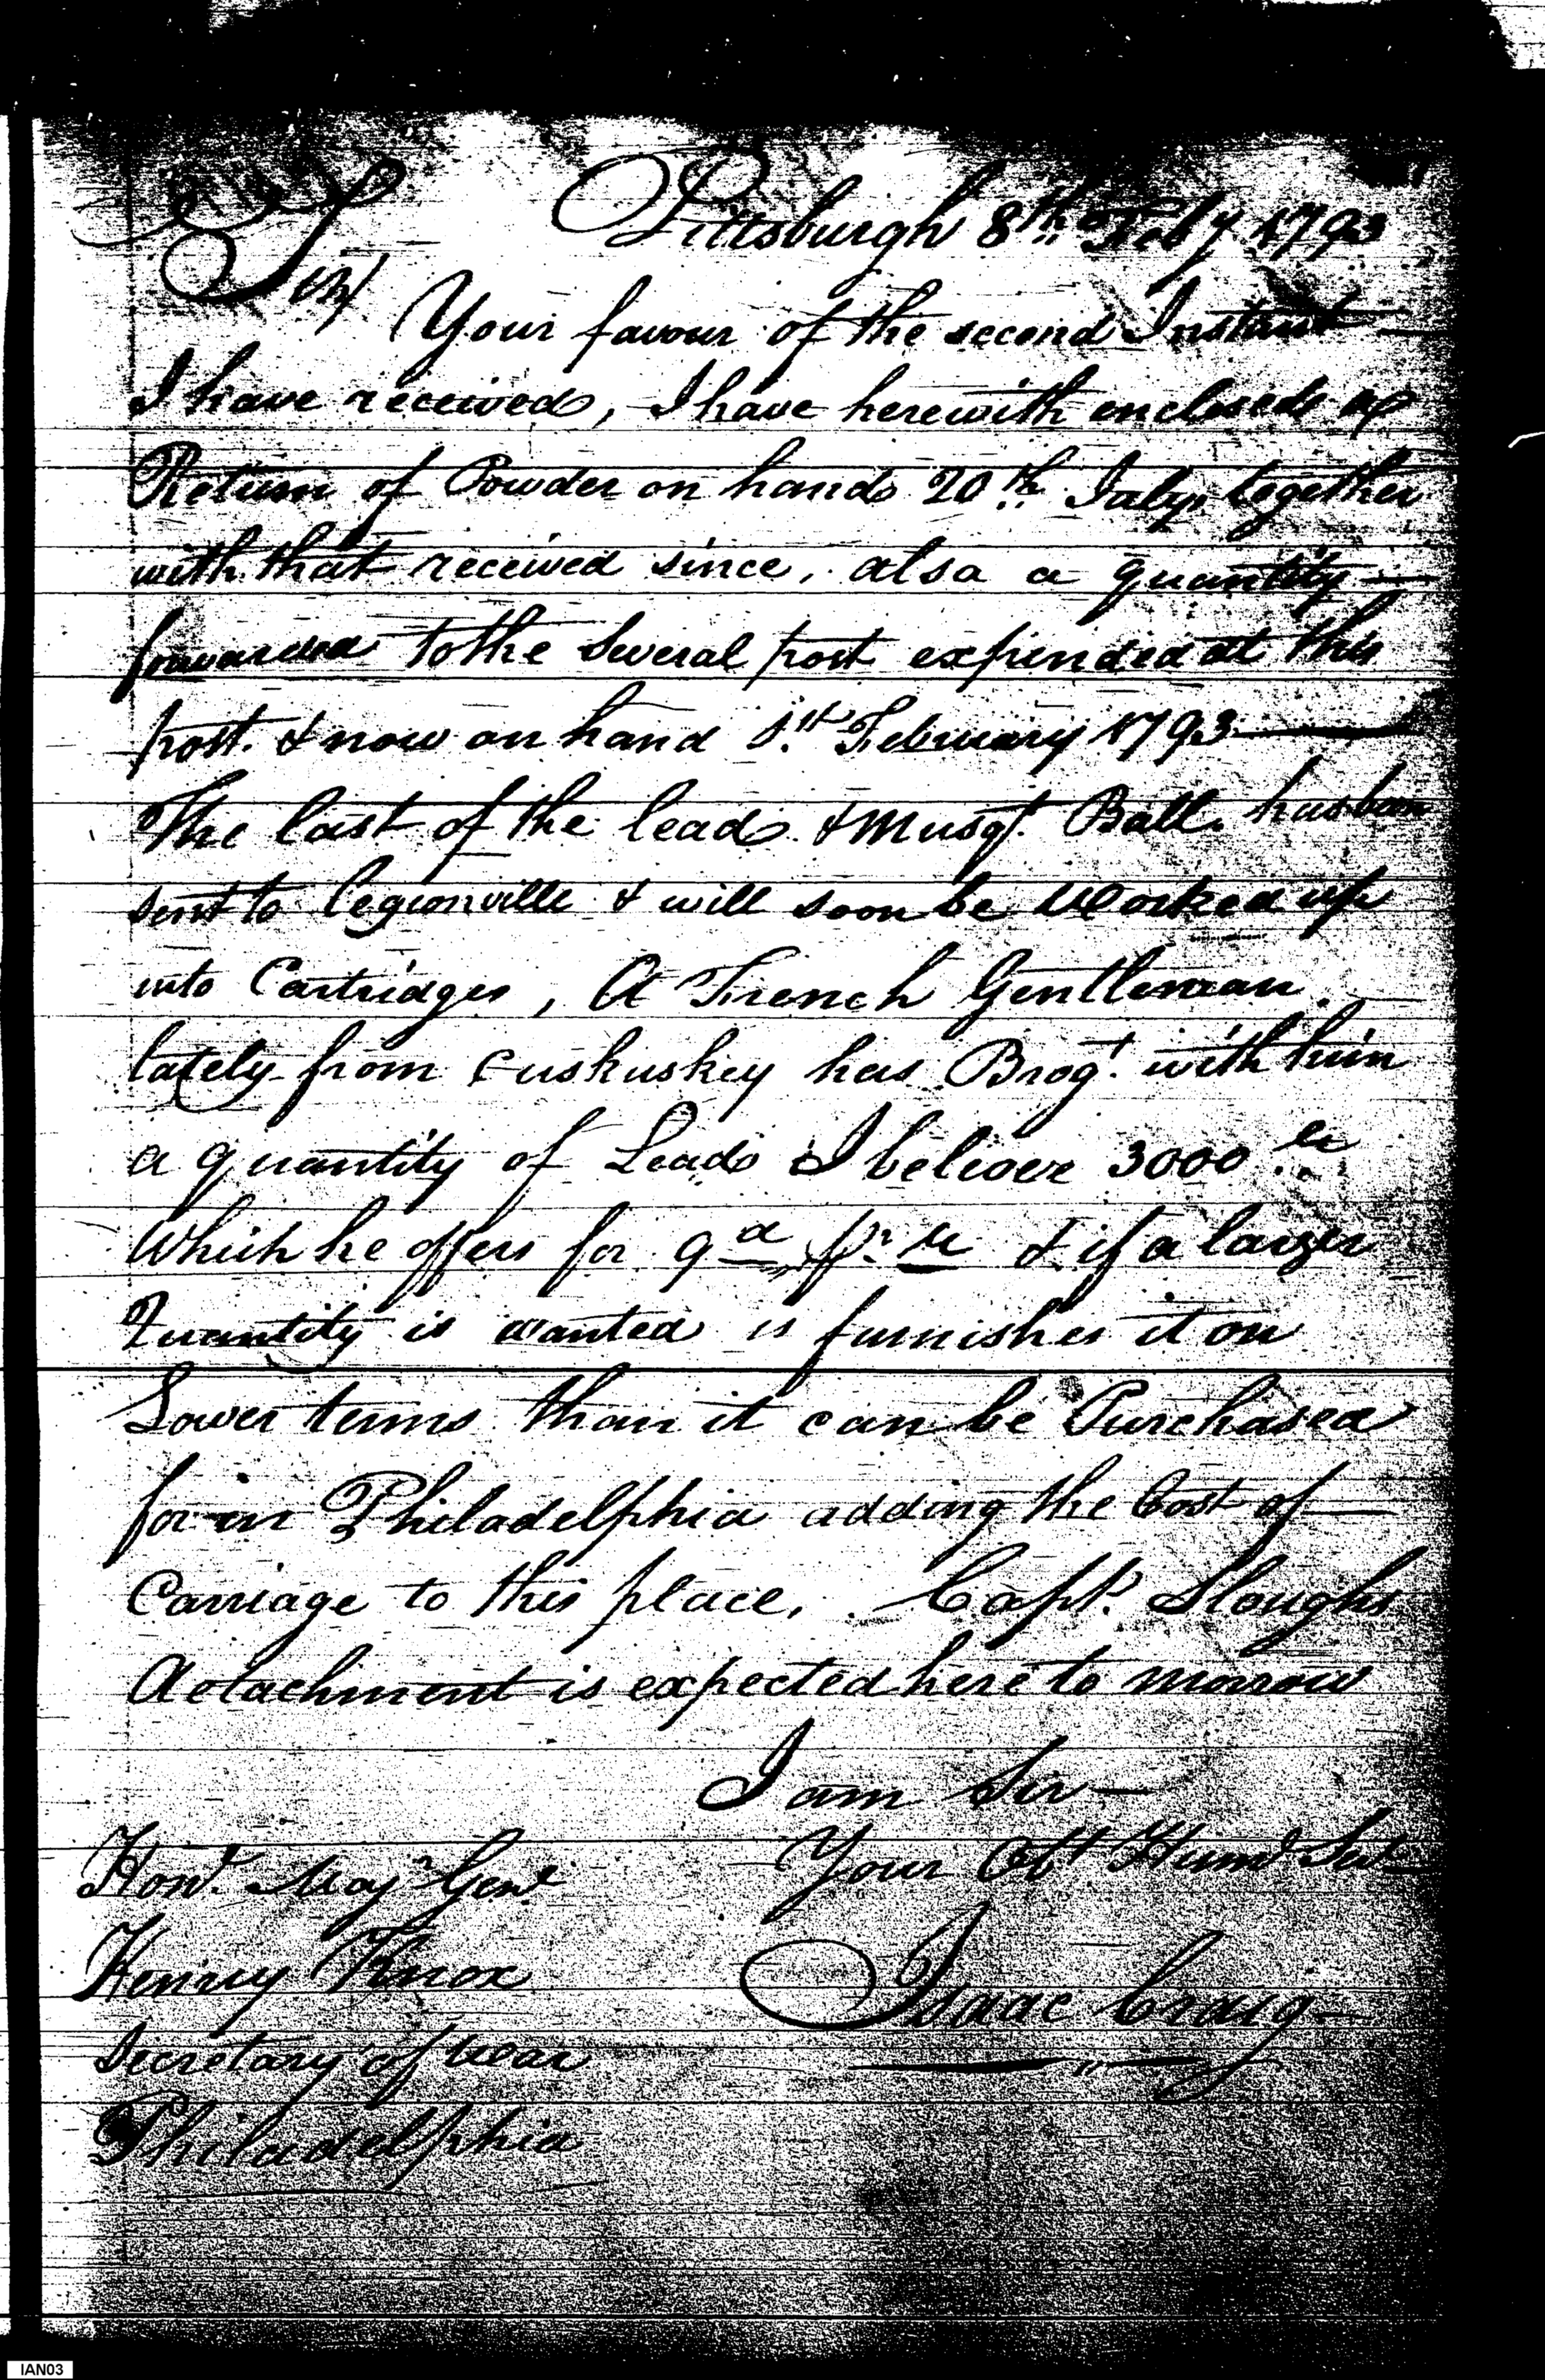 Pittsburgh 8th Feby 1793
Sir
Your favour of the second Instant
I have received, I have herewith enclosed a
Return of Powder on hand 20th July, together
with that received since, also a quantity
forwarded to the Several post expended at this
post. & now on hand 1st February 1793
The last of the lead & Musqt. Ball. has been
sent to Legionville & will soon be Worked up
into Cartridges, A French Gentleman
lately from Cuskuskey has Brogt. with him
a quantity of Lead I believe 3000 lb
Which he offers for 9d pr lb & if a larger
Quantity is wanted furnishes it on
Lower terms than it can be Purchased
for in Philadelphia adding the Cost of
Carriage to this place. Capt. Sloughs
detachment is expected here to morrow
I am Sir
Your Obt Huml Sert
Isaac Craig
Honl. Majr Genl
Henry Knox
Secretary of War
Philadelphia
IAN03